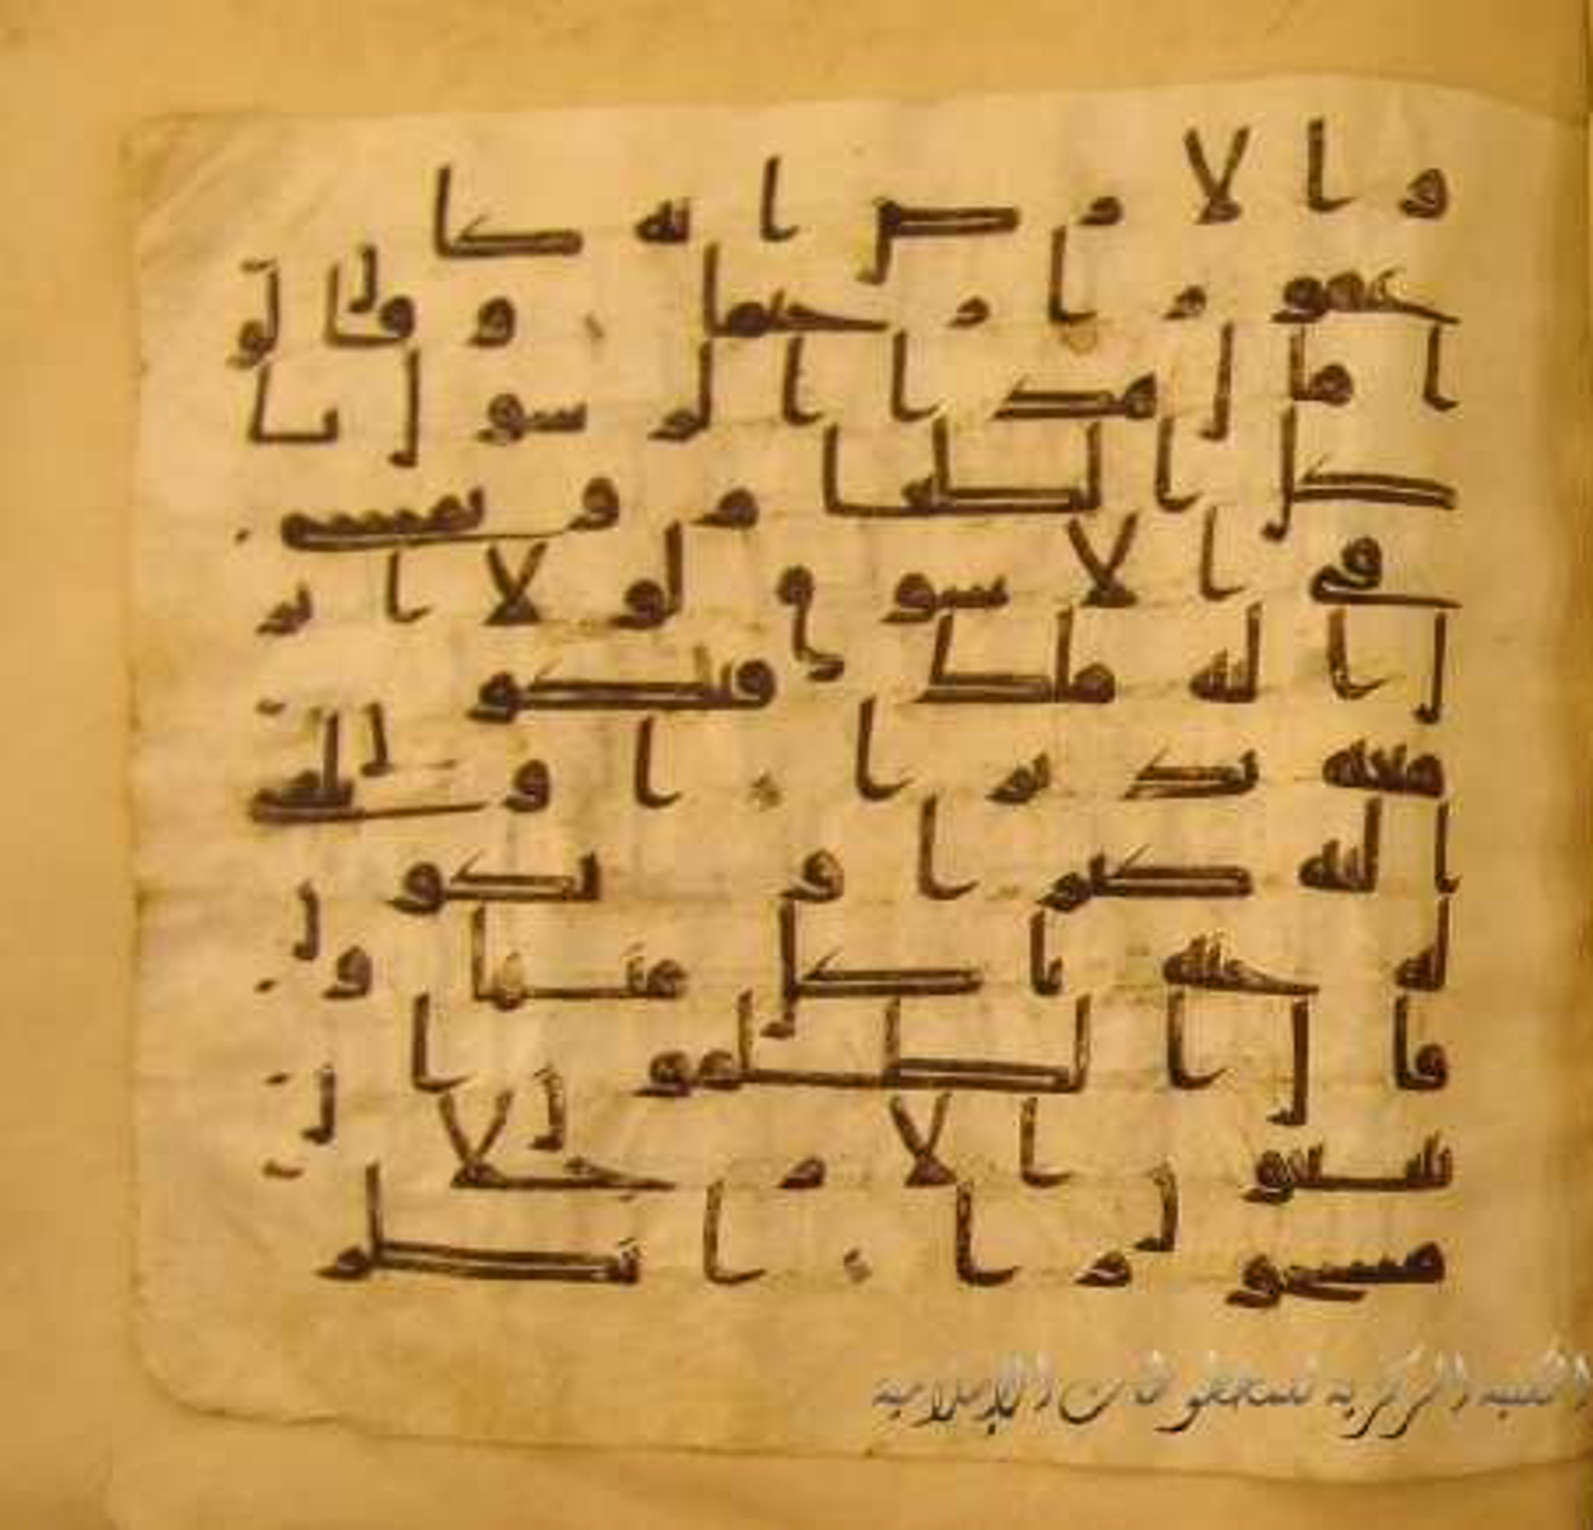 والارض انه كان
غفورا رحيما وقالو
ا مال هذا الرسول يا
كل الطعام ويمشي
في الاسواق لولا انز
ل اليه ملك فيكون
معه نذيرا او يلقى
اليه كنز او تكون
له جنه ياكل منها و
قال الظلمون ان
تتبعون الا رجلا
مسحورا انظر
المكتبة المركزية للمخطوطات الإسلامية